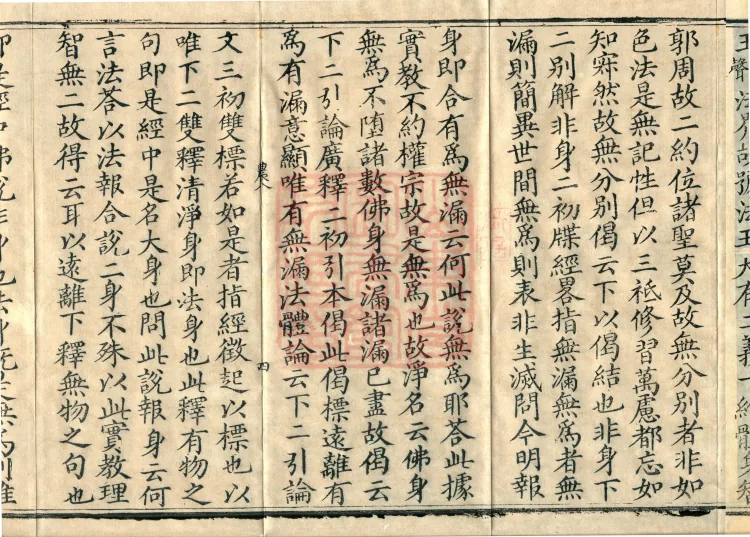 王聲法界故號法王大有三義一絶體
郭周故二約位諸聖莫及故無分別者非如
色法是無記性但以三祇修習萬慮都忘如
知寂然故無分別偈云下以偈結也非身下
二別解非身二初牒經畧指無漏無為者無
漏則簡異世間無為則表非生滅問今明報
身即合有為無漏云何此說無為耶荅此據
實教不約權宗故是無為也故淨名云佛身
無為不墮諸數佛身無漏諸漏已盡故偈云
下二引論廣釋二初引本偈此偈標遠離有
為有漏意顯唯有無漏法體論云下二引論
農八 四
文三初雙標若如是者指經徵起以標也以
唯下二雙釋清淨身即法身也此釋有物之
句即是經中是名大身也問此說報身云何
言法荅以法報合說二身不殊以此實教理
智無二故得云耳以遠離下釋無物之句也
即是經中佛說非身也法身既是無為則唯